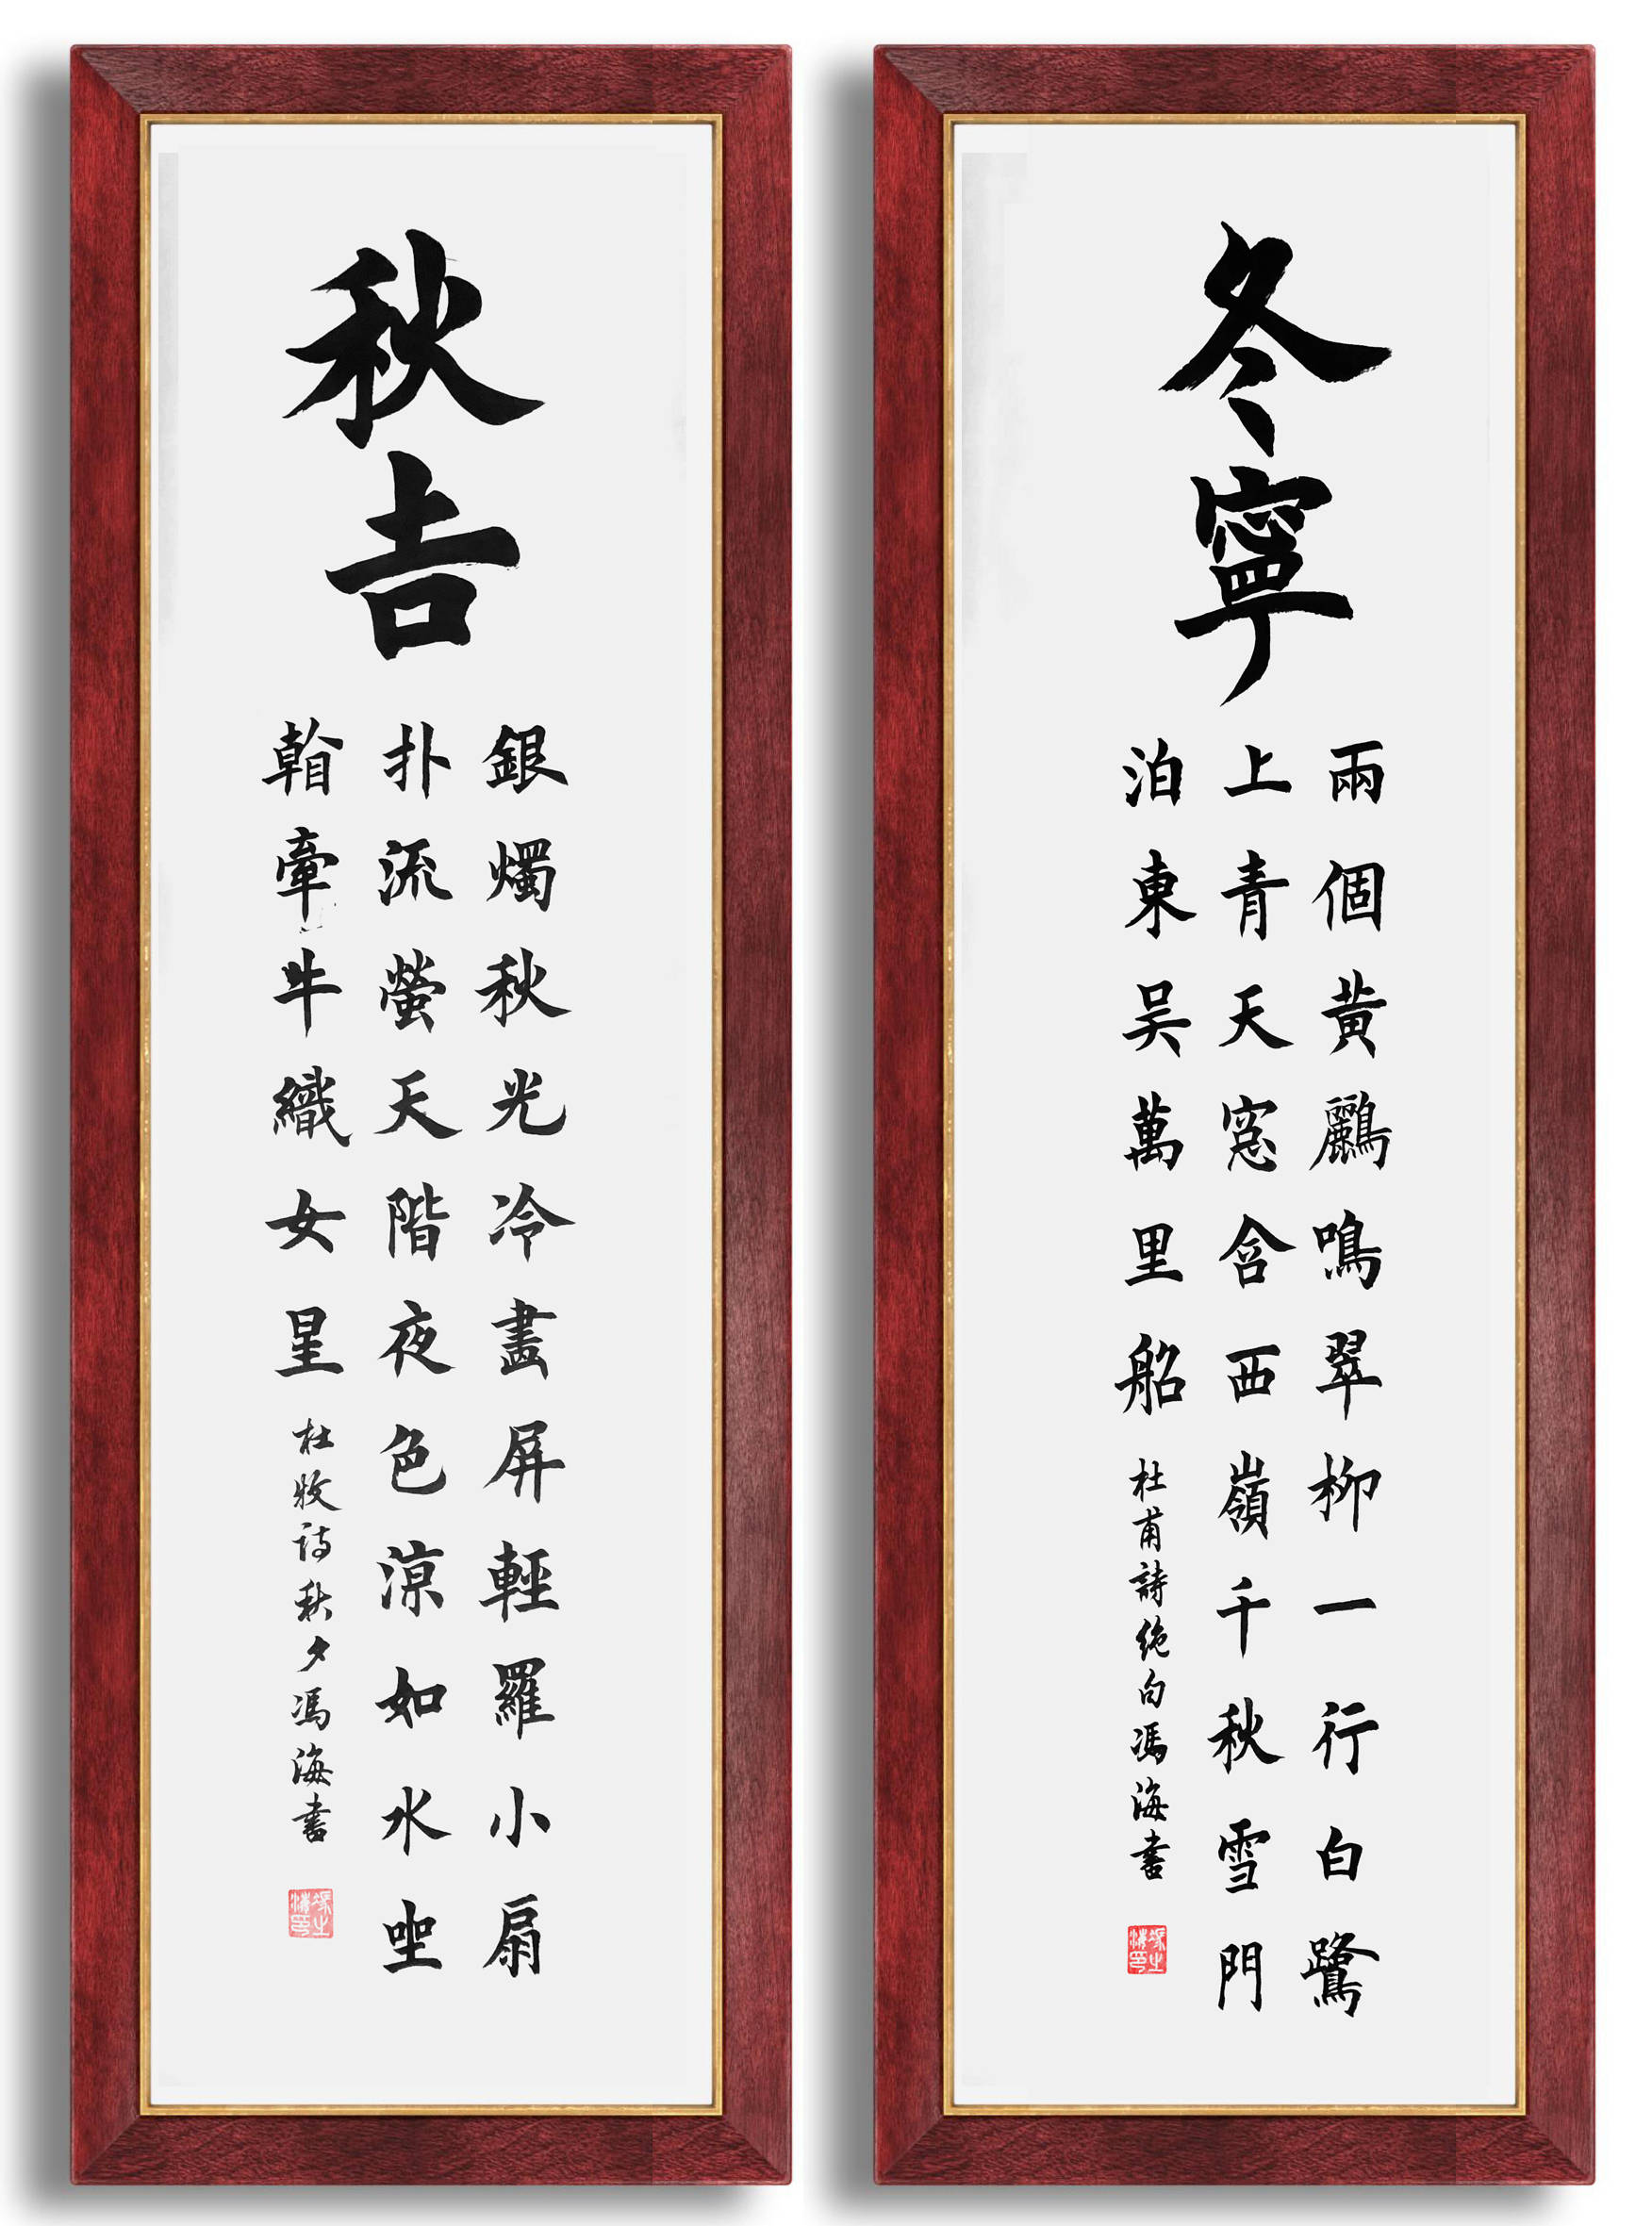 秋吉
銀燭秋光冷畫屏輕羅小扇
扑流螢天階夜色涼如水坐
看牽牛織女星
杜牧詩秋夕馮海書
冬寧
兩個黃鸝鳴翠柳一行白鷺
上青天窓含西嶺千秋雪門
泊東吳萬里船
杜甫詩絶句馮海書